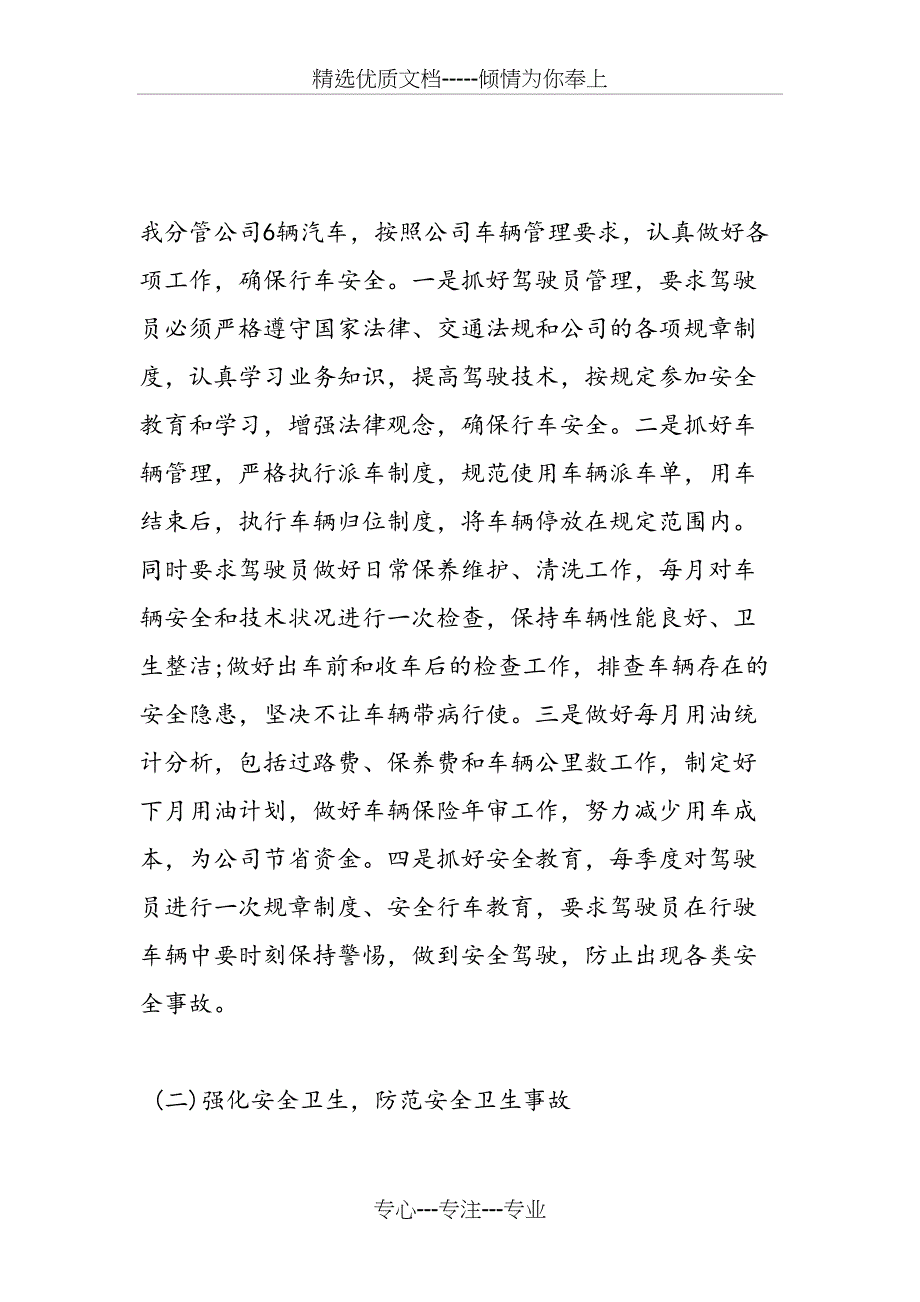 精选优质文档-----倾情为你奉上
我分管公司6辆汽车，按照公司车辆管理要求，认真做好各
项工作，确保行车安全。一是抓好驾驶员管理，要求驾驶
员必须严格遵守国家法律、交通法规和公司的各项规章制
度，认真学习业务知识，提高驾驶技术，按规定参加安全
教育和学习，增强法律观念，确保行车安全。二是抓好车
辆管理，严格执行派车制度，规范使用车辆派车单，用车
结束后，执行车辆归位制度，将车辆停放在规定范围内。
同时要求驾驶员做好日常保养维护、清洗工作，每月对车
辆安全和技术状况进行一次检查，保持车辆性能良好、卫
生整洁;做好出车前和收车后的检查工作，排查车辆存在的
安全隐患，坚决不让车辆带病行使。三是做好每月用油统
计分析，包括过路费、保养费和车辆公里数工作，制定好
下月用油计划，做好车辆保险年审工作，努力减少用车成
本，为公司节省资金。四是抓好安全教育，每季度对驾驶
员进行一次规章制度、安全行车教育，要求驾驶员在行驶
车辆中要时刻保持警惕，做到安全驾驶，防止出现各类安
全事故。
(二)强化安全卫生，防范安全卫生事故
专心---专注---专业